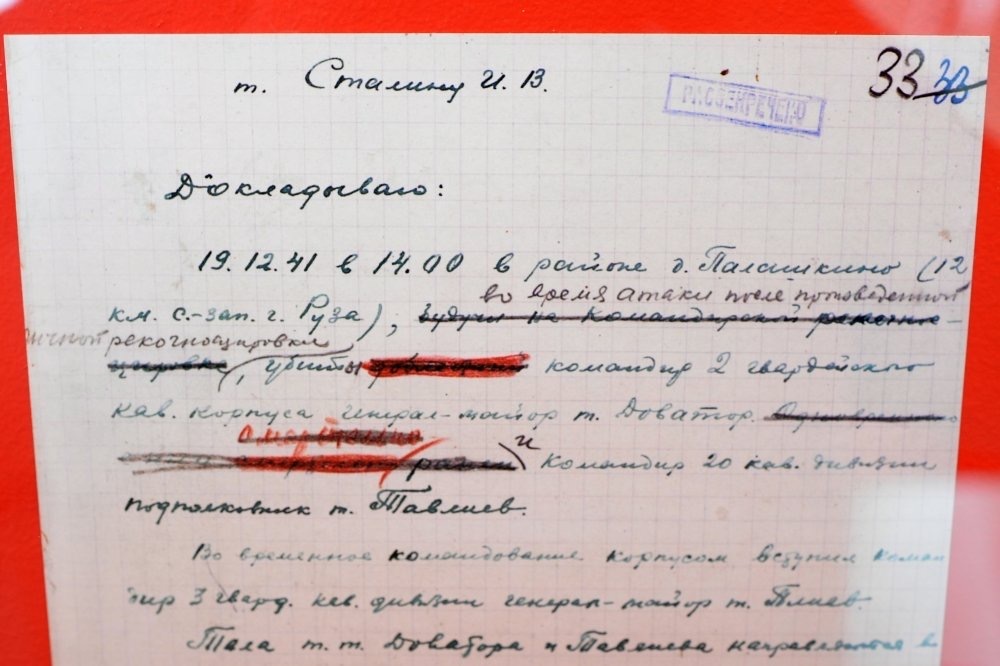 т. Сталину И. В.
РАССЕКРЕЧЕНО
33 33
Докладываю:
19.12.41 в 14.00 в районе д. Палашкино (12
во время атаки после произведенной
км. с.-зап. г. Руза), будучи на командирской рекогно-
личной рекогносцировки
сцировке, убиты командир 2 гвардейского
кав. корпуса генерал-майор т. Доватор. Одновременно
смертельно
ранен и командир 20 кав. дивизии
подполковник т. Тавлиев.
Во временное командование корпусом вступил коман
дир 3 гвард. кав. дивизии генерал-майор т. Плиев.
Тела т.т. Доватора и Тавлиева направляются в